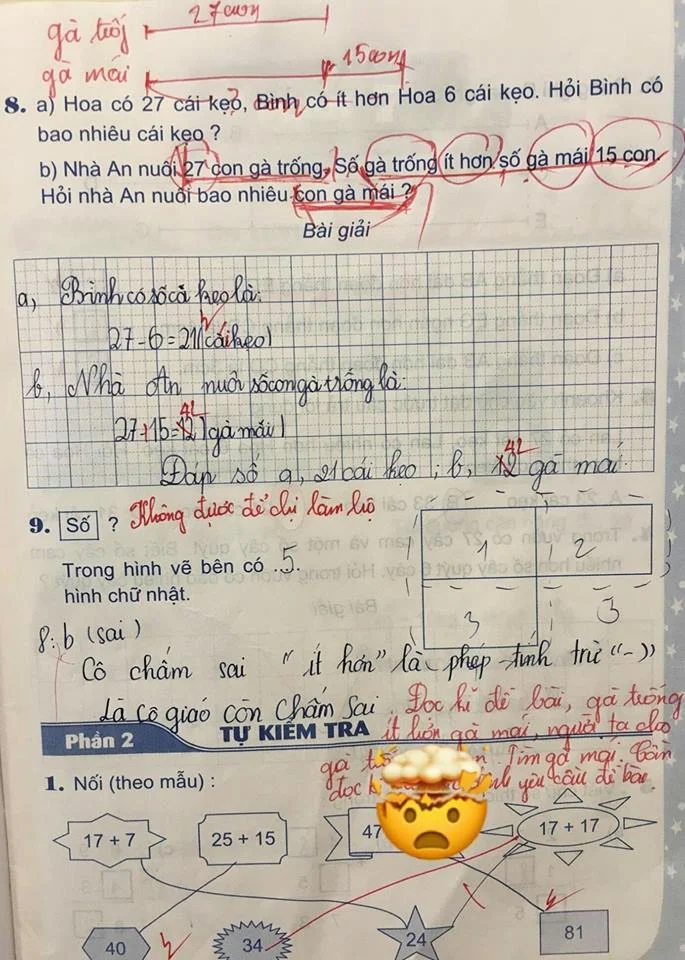 gà trống 27 con
gà mái 15 con
? con
8. a) Hoa có 27 cái kẹo, Bình có ít hơn Hoa 6 cái kẹo. Hỏi Bình có
bao nhiêu cái kẹo ?
b) Nhà An nuôi 27 con gà trống. Số gà trống ít hơn số gà mái 15 con.
Hỏi nhà An nuôi bao nhiêu con gà mái ?
Bài giải
a, Bình có số cả kẹo là:
27 - 6 = 21 (cái kẹo)
b, Nhà An nuôi số con gà trống là:
42
27 + 15 = 12 (gà mái)
42
Đáp số a, 21 cái kẹo ; b, 12 gà mái
9. Số ? Không được để chị làm hộ
Trong hình vẽ bên có 5
hình chữ nhật.
1 2
3 3
8: b (sai)
Cô chấm sai "ít hơn" là phép tính trừ "-"
Là cô giáo còn chấm sai. Đọc kĩ đề bài, gà trống
Phần 2 TỰ KIỂM TRA ít hơn gà mái, người ta cho
gà Tìm gà mái. Cần
1. Nối (theo mẫu) : đọc yêu cầu đề bài
17 + 7 25 + 15 47 17 + 17
40 34 24 81